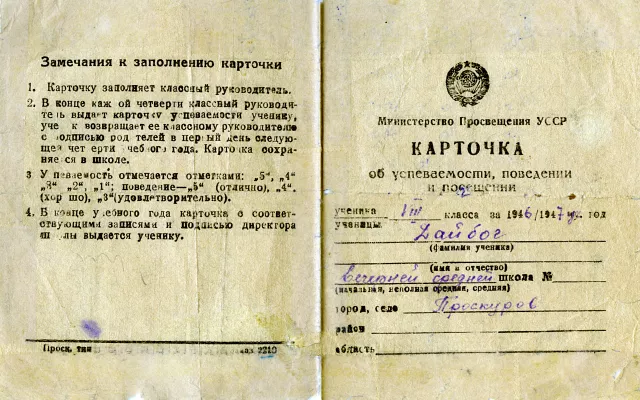 Замечания к заполнению карточки
1. Карточку заполняет классный руководитель.
2. В конце каж ой четверти классный руководи-
тель выдает карточку успеваемости ученику,
уче к возвращает ее классному руководителю
с подписью род телей в первый день следую-
щей чет ерти учебного года. Карточка сохра-
няется в школе.
3 Успеваемость отмечается отметками: „5", „4"
„3" „2", „1"; поведение—„5" (отлично), „4".
(хор шо), „3"(удовлетворительно).
4. В конце учебного года карточка с соответ-
ствующими записями и подписью директора
школы выдается ученику.
Проск. тип зак. 2210
Министерство Просвещения УССР
КАРТОЧКА
об успеваемости, поведении
и посещении
ученика VIII класса за 1946/1947 уч. год
ученицы Дайбог
(фамилия ученика)
(имя и отчество)
Вечерней средней школа №
(начальная, неполная средняя, средняя)
город, село Проскуров
район
область